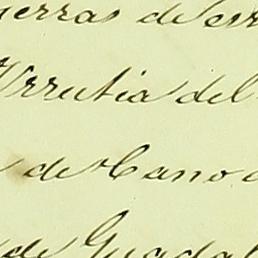 erras de
Urrutia del
de Cano
de Guadal